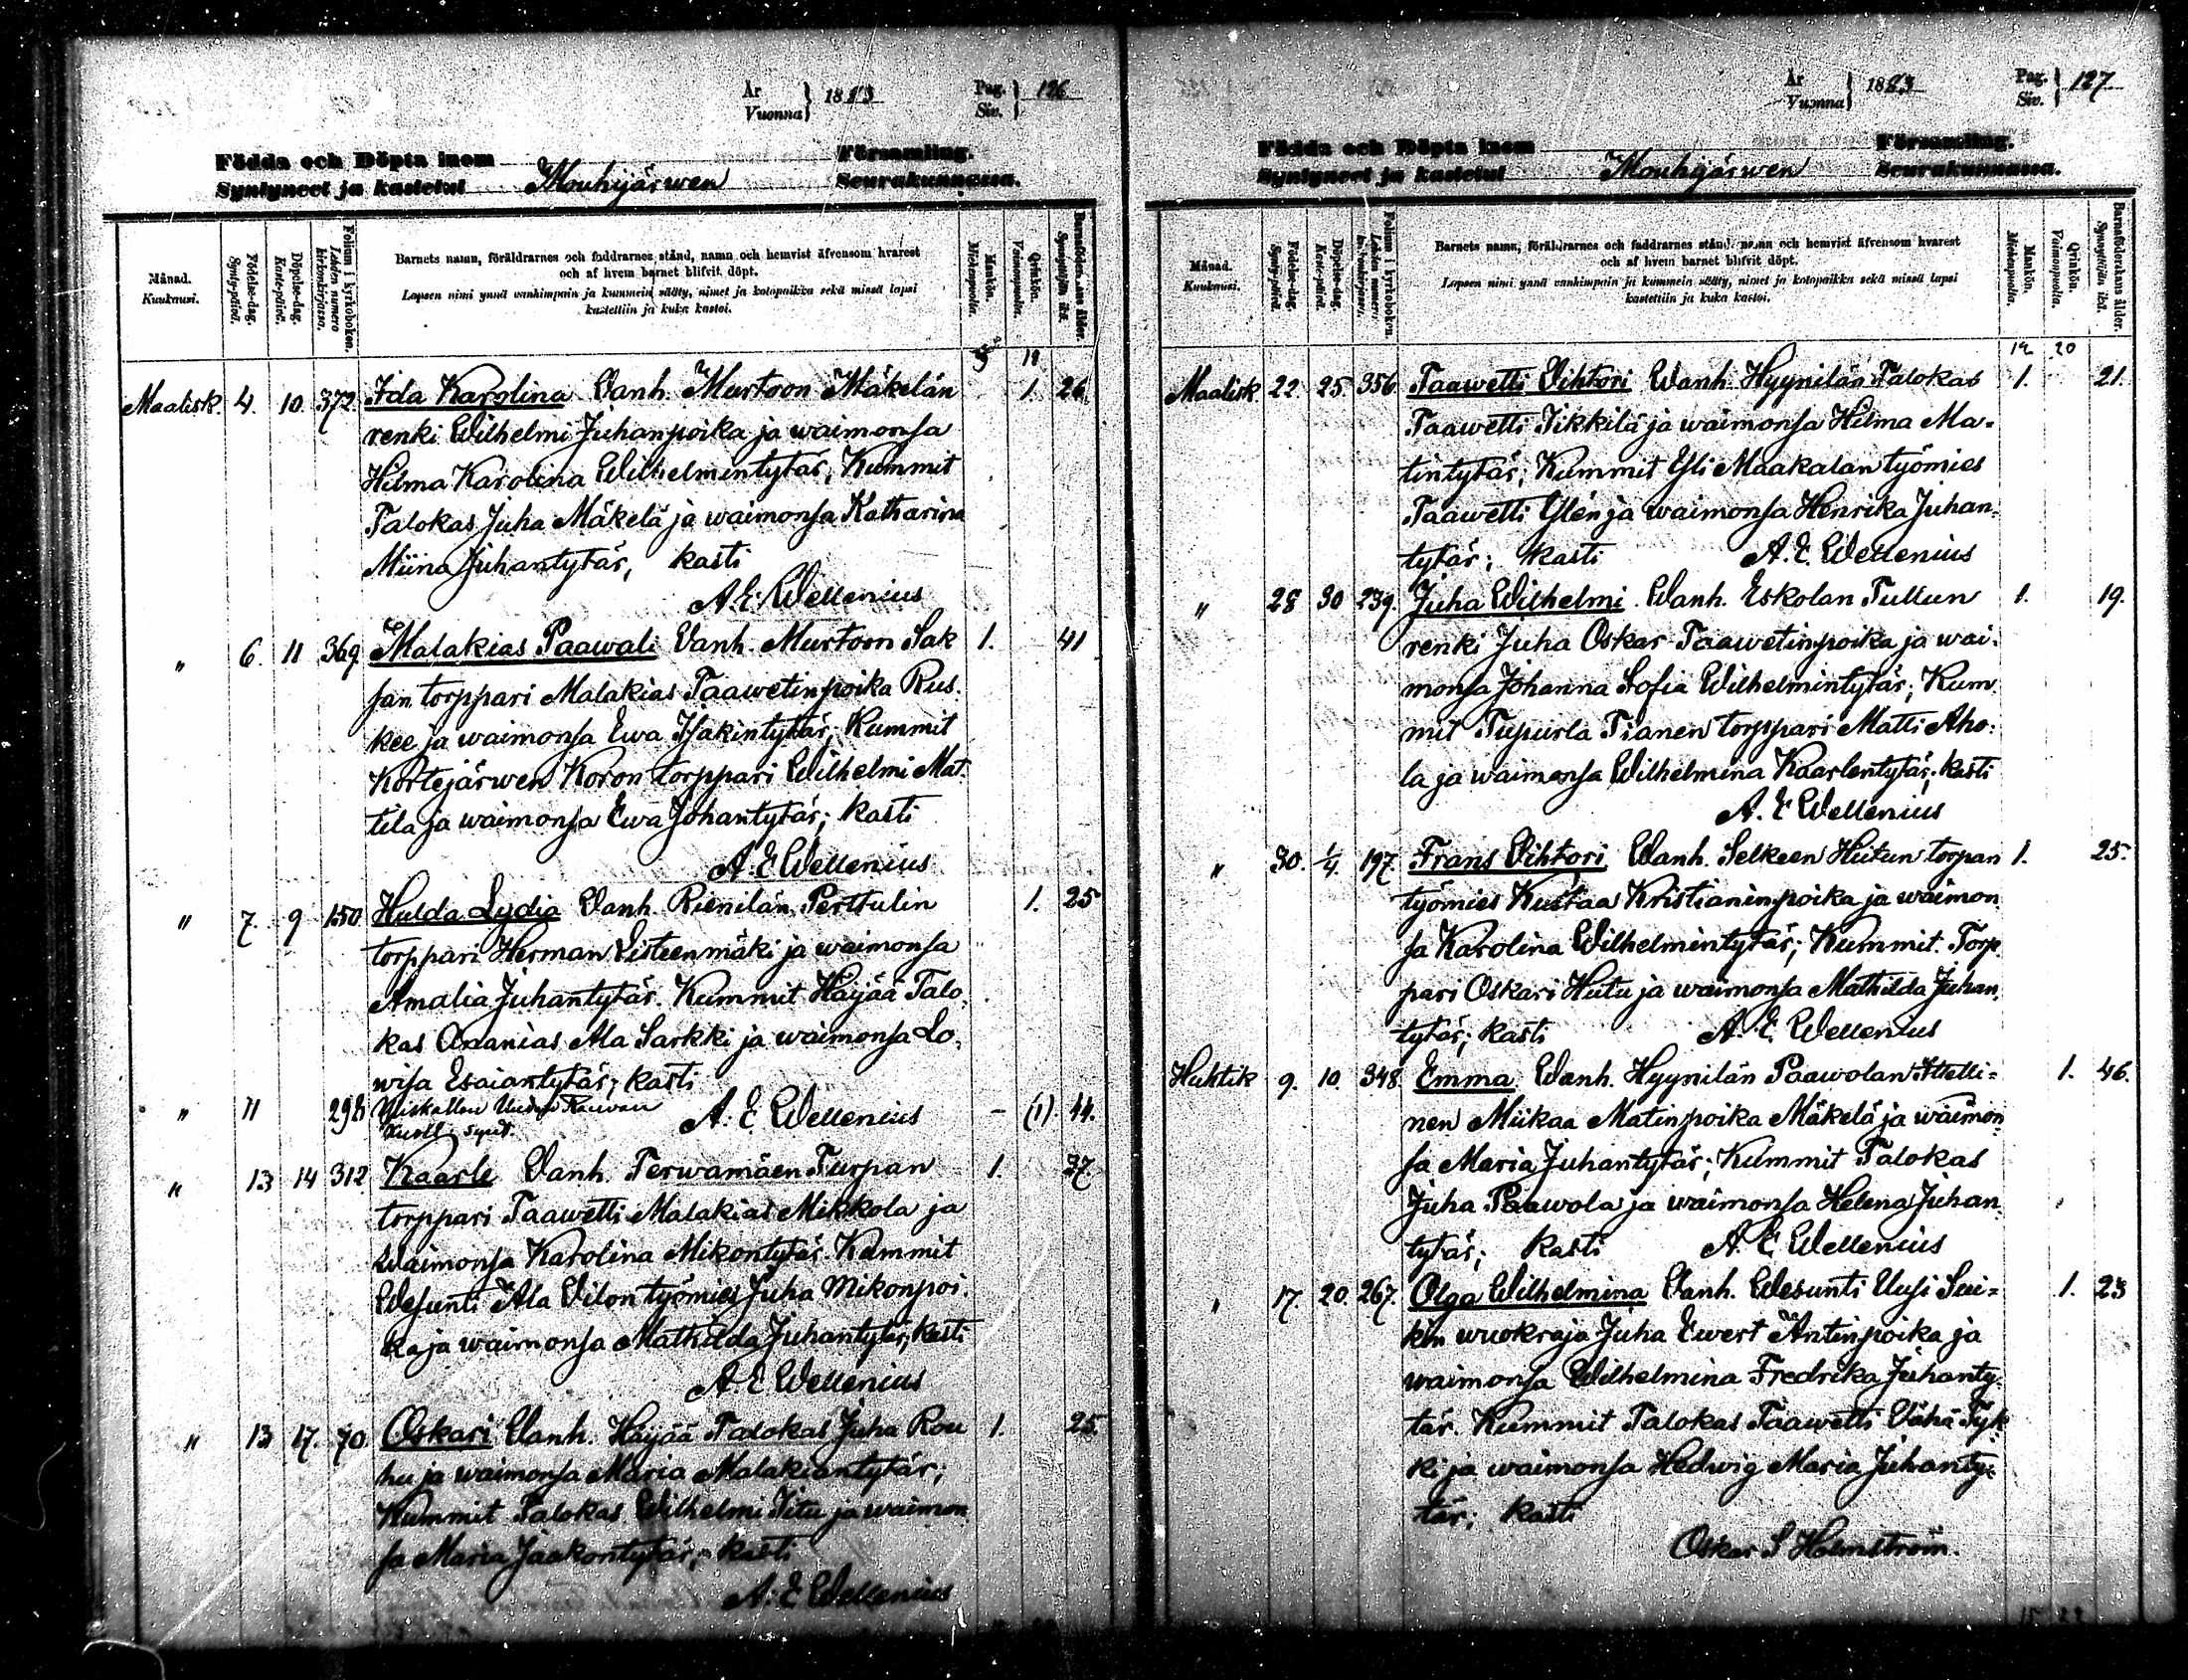 År
Vuonna } 1883
Pag.
Siv. } 126
Födda och Döpta inom Församling.
Syntyneet ja kastetut Mouhijärwen Seurakunnassa.
Månad.
Kuukausi.
Födelse-dag.
Synty-päivä.
Döpelse-dag.
Kaste-päivä.
Folium i kyrkoboken.
Lehden numero
kirkonkirjassa.
Barnets namn, föräldrarnes och faddrarnes stånd, namn och hemvist äfvensom hvarest
och af hvem barnet blifvit döpt.
Lapsen nimi ynnä vanhimpain ja kummein sääty, nimet ja kotopaikka sekä missä lapsi
kastettiin ja kuka kastoi.
Mankön.
Miehenpuolia.
Qvinkön.
Vaimonpuolia.
Barnaföderskans ålder.
Synnyttäjän ikä.
Maalisk. 4. 10. 372. Ida Karolina Vanh. Murtoon Mäkelän 1. 26.
renki Wilhelmi Juhanpoika ja waimonsa
Hilma Karolina Wilhelmintytär, Kummit
Talokas Juha Mäkelä ja waimonsa Katharina
Miina Juhantytär, kasti
A. E. Wellenius
" 6. 11 369. Malakias Paawali Vanh. Murtoon Sak 1. 41
san torppari Malakias Taawetinpoika Rus.
kee ja waimonsa Ewa Isakintytär, Kummit
Kortejärwen Koron torppari Wilhelmi Mat.
tila ja waimonsa Ewa Johantytär; kasti
A. E Wellenius
" 7. 9 150 Hulda Lydia Vanh. Rienilän Perttulin 1. 25
torppari Herman Listeenmäki ja waimonsa
Amalia Juhantytär. Kummit Häijää Talo.
kas Ananias Ala Sarkki ja waimonsa Lo.
wisa Esaiantytär; kasti
" 11 298 Yliskallon Uuden Rauvan A. E. Wellenius - (1). 44.
kuoll. synt.
" 13 14 312. Kaarle Vanh. Terwamäen Turpan 1. 37.
torppari Taawetti Malakias Mikkola ja
waimonsa Karolina Mikontytär. Kummit
Wesunti Ala Vilon työmies Juha Mikonpoi.
ka ja waimonsa Mathilda Juhantytär; kasti
A. E Wellenius
" 13 17. 70. Oskari Vanh. Häijää Talokas Juha Rou 1. 25.
hu ja waimonsa Maria Malakiantytär;
Kummit Talokas Wilhelmi Iitu ja waimon
sa Maria Jaakontytär; kasti
A. E Wellenius
År
Vuonna } 1883
Pag.
Siv. } 127
Födda och Döpta inom Församling.
Syntyneet ja kastetut Mouhijärwen Seurakunnassa.
Månad.
Kuukausi.
Födelse-dag.
Synty-päivä.
Döpelse-dag.
Kaste-päivä.
Folium i kyrkoboken.
Lehden numero
kirkonkirjassa.
Barnets namn, föräldrarnes och faddrarnes stånd, namn och hemvist äfvensom hvarest
och af hvem barnet blifvit döpt.
Lapsen nimi ynnä vanhimpain ja kummein sääty, nimet ja kotopaikka sekä missä lapsi
kastettiin ja kuka kastoi.
Mankön.
Miehenpuolia.
Qvinkön.
Vaimonpuolia.
Barnaföderskans ålder.
Synnyttäjän ikä.
Maalisk. 22. 25. 356. Taawetti Vihtori Wanh. Hyynilän Talokas 1. 21.
Taawetti Iikkilä ja waimonsa Hilma Ma-
tintytär; Kummit Yli Maakalan työmies
Taawetti Glen ja waimonsa Henrika Juhan.
tytär; kasti A. E. Wellenius
" 28 30 239. Juha Wilhelmi. Wanh. Eskolan Tullun 1. 19.
renki Juha Oskar Taawetinpoika ja wai.
monsa Johanna Sofia Wilhelmintytär; Kum.
mit Tupurla Pianen torppari Matti Aho.
la ja waimonsa Wilhelmina Kaarlentytär; kasti
A. E Wellenius
" 30. 1/4. 197. Frans Vihtori, Wanh. Selkeen Hiitun torpan 1. 25.
työmies Kustaa Kristianinpoika ja waimon.
sa Karolina Wilhelmintytär; Kummit. Torp.
pari Oskari Hiitu ja waimonsa Mathilda Juhan.
tytär; kasti A. E. Wellenius
Huhtik 9. 10. 348. Emma. Wanh. Hyynilän Paawolan Itelli- 1. 46.
nen Miikaa Matinpoika Mäkelä ja waimon
sa Maria Juhantytär; Kummit Talokas
Juha Paawola ja waimonsa Helena Juhan.
tytär; kasti A. E. Wellenius
" 17. 20. 267. Olga Wilhelmina Vanh. Wesunti Uusi Sui- 1. 23
kin wuokraja Juha Ewert Antinpoika ja
waimonsa Wilhelmina Fredrika Juhanty.
tär. Kummit Talokas Taawetti Vähä Tyk.
ki ja waimonsa Hedwig Maria Juhanty.
tär; kasti
Oskar S Holmström.